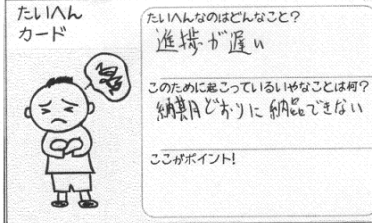 たいへん
カード
たいへんなのはどんなこと?
進捗が遅い
このために起こっているいやなことは何?
納期どおりに納品できない
ここがポイント!